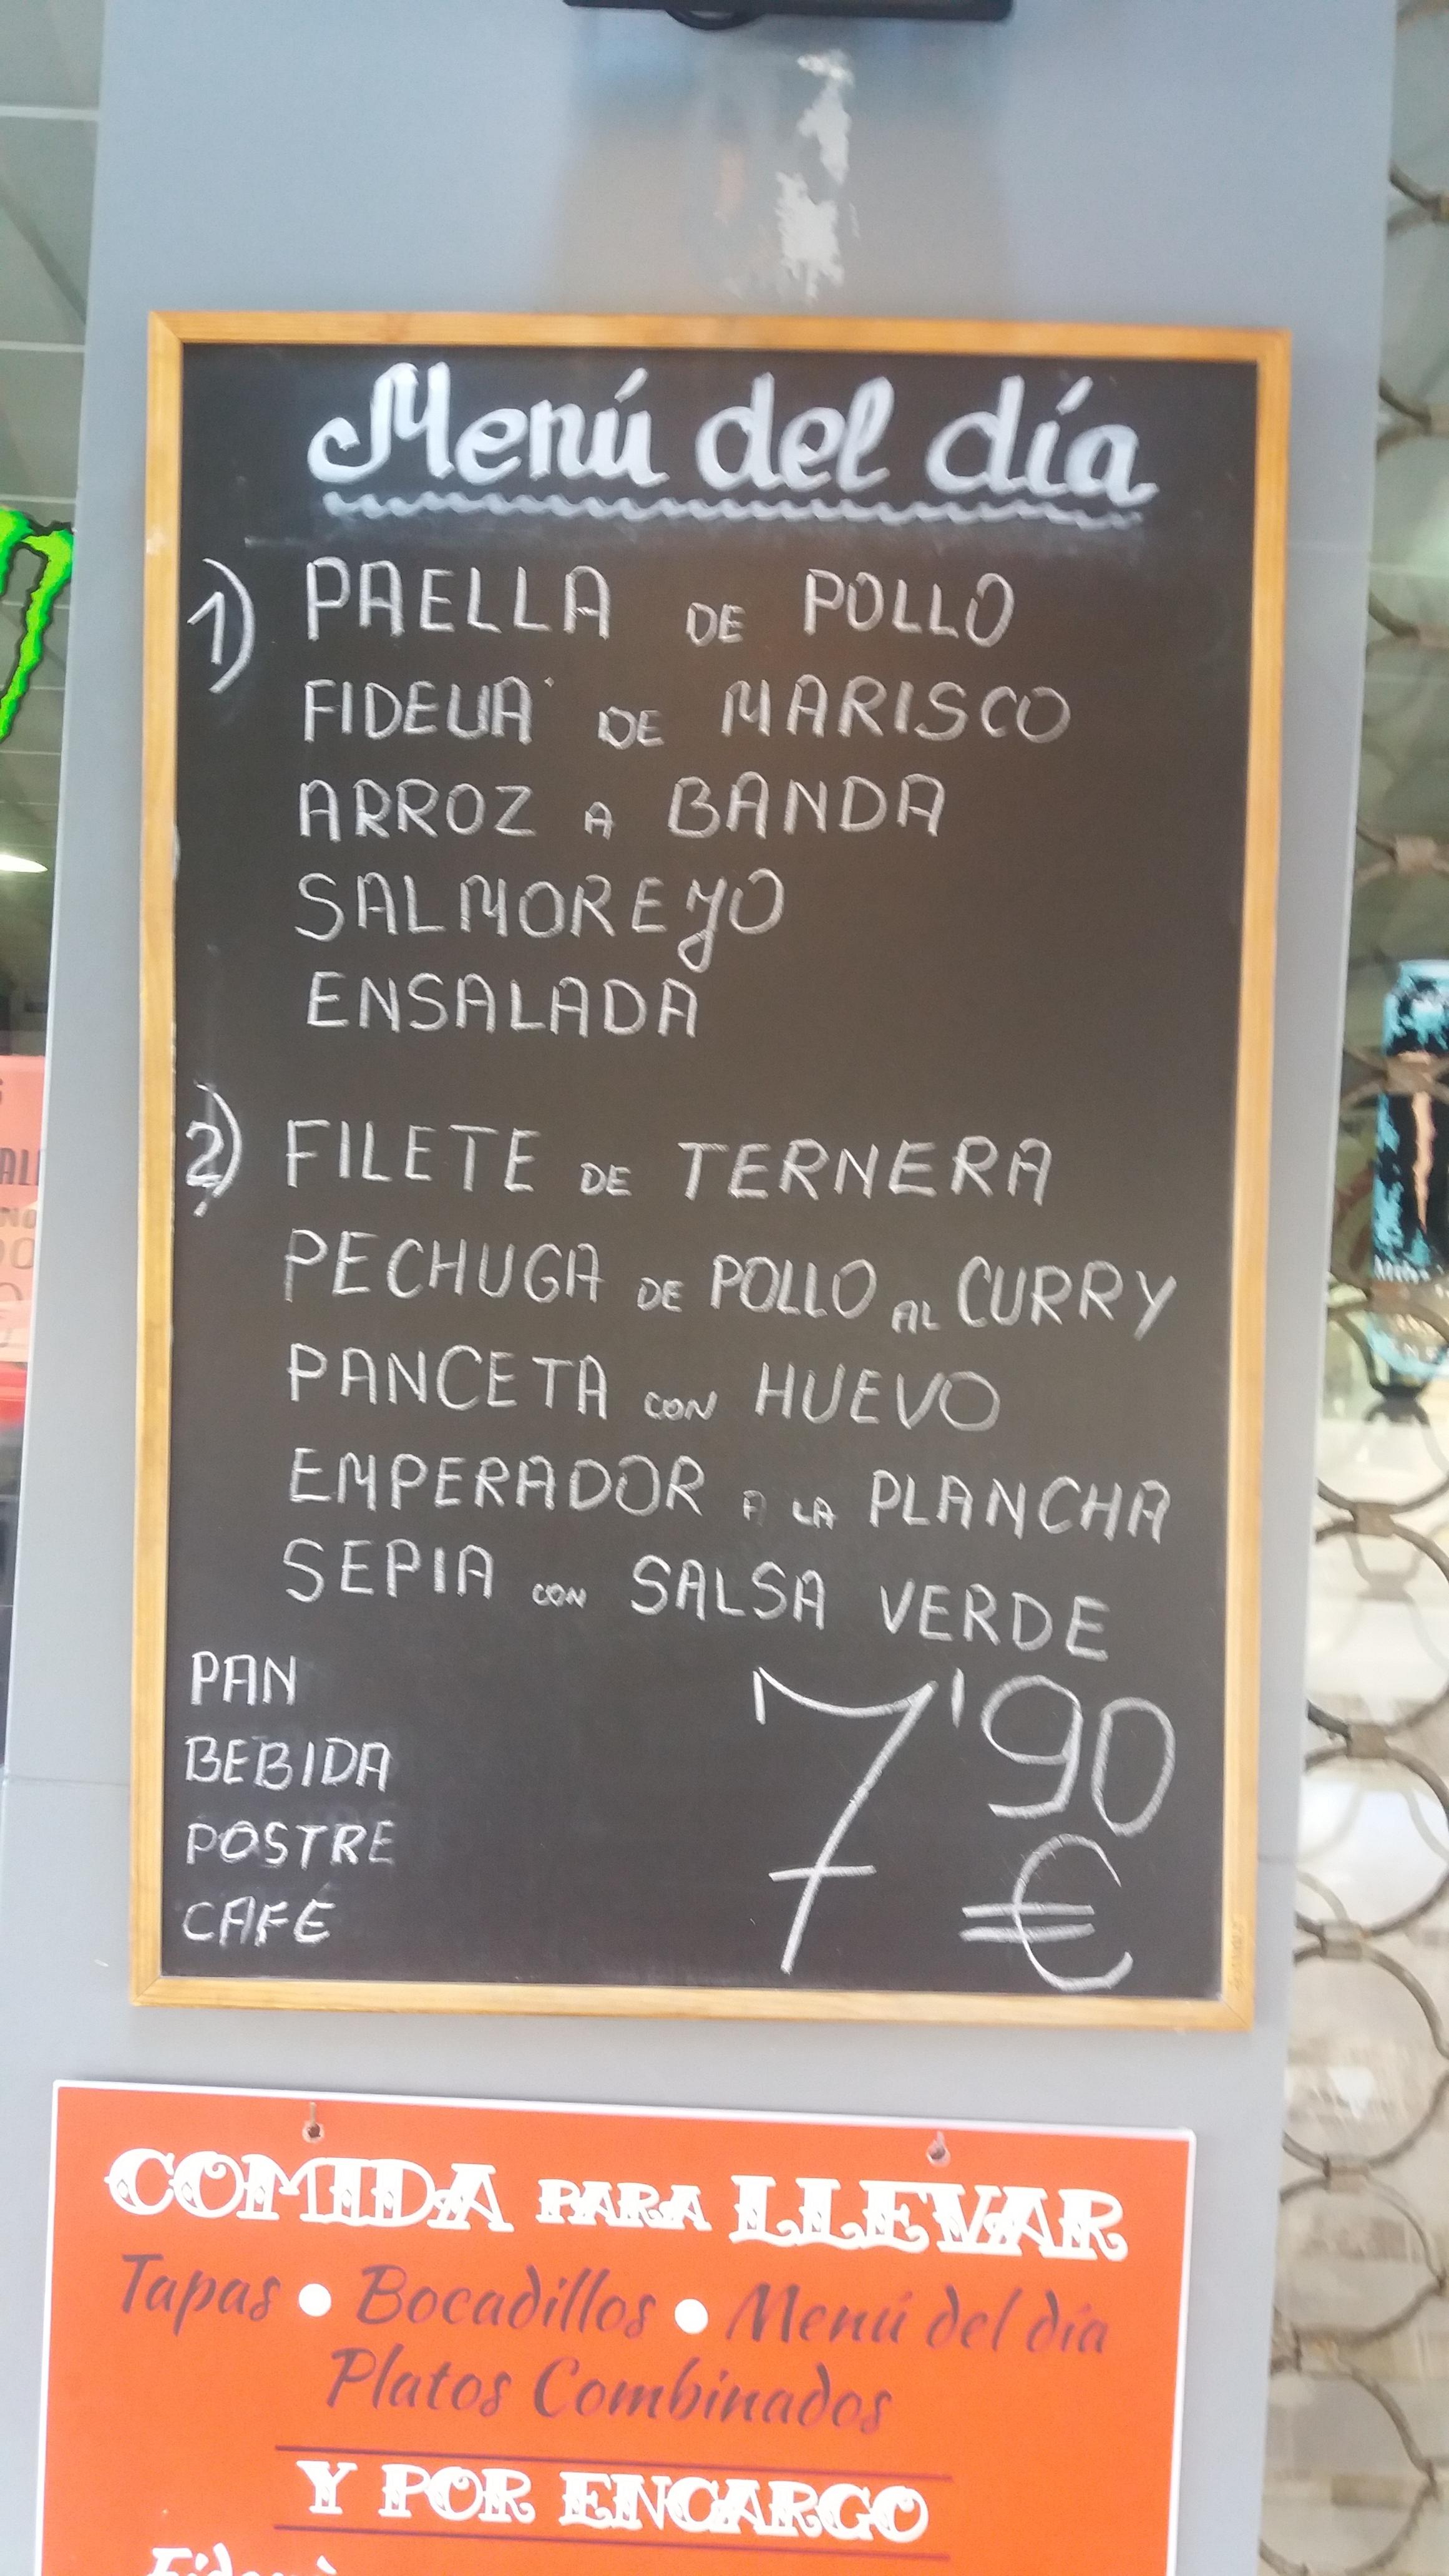 Menú del día
1) PAELLA DE POLLO
FIDEUA' DE MARISCO
ARROZ A BANDA
SALMOREJO
ENSALADA
2) FILETE DE TERNERA
PECHUGA DE POLLO AL CURRY
PANCETA CON HUEVO
EMPERADOR A LA PLANCHA
SEPIA CON SALSA VERDE
PAN
BEBIDA
POSTRE
CAFÉ
7'90
€
COMIDA PARA LLEVAR
Tapas • Bocadillos • Menú del día
Platos Combinados
Y POR ENCARGO